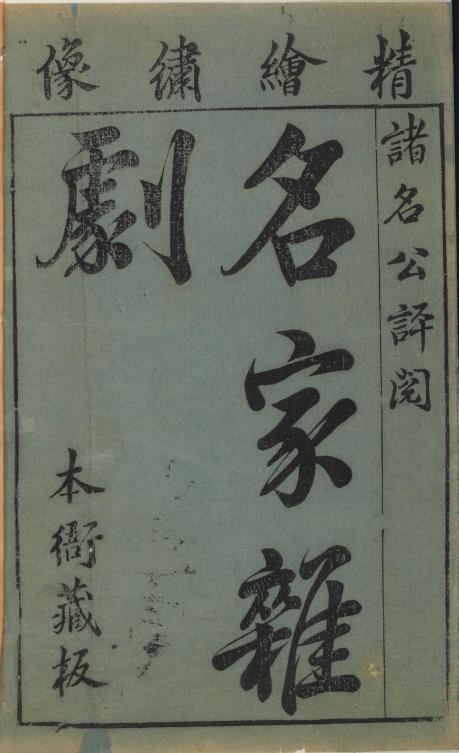 精繪繡像
諸名公評閱
名家雜
劇
本衙藏板